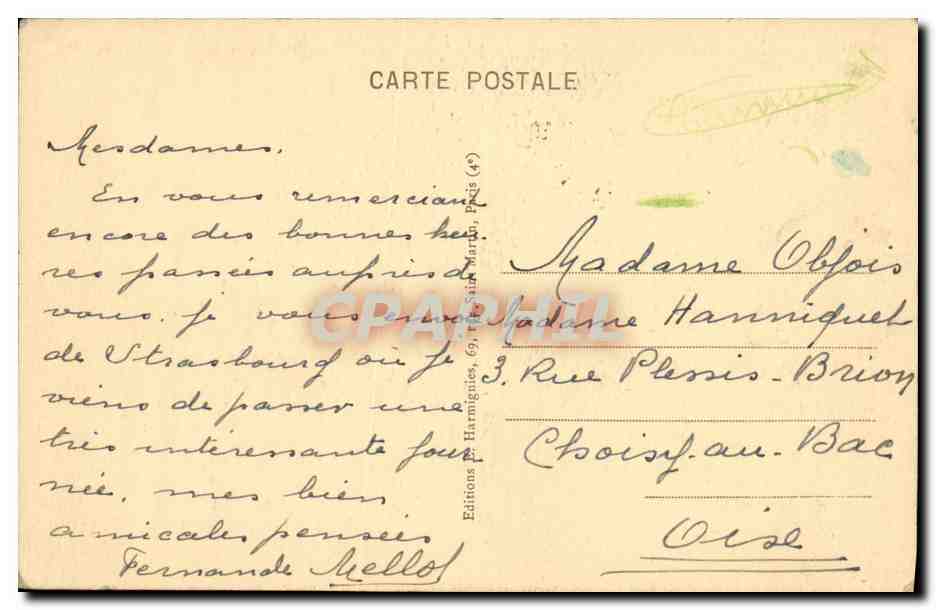 CARTE POSTALE
Mesdames.
En vous remerciant
encore des bonnes heu-
res passées auprès de
vous. je vous envoie
de Strasbourg où je
viens de passer une
très intéressante jour
née. mes bien
amicales pensées
Fernande Mellot
Editions Harmignies, 69, rue Saint-Martin, Paris (4e)
CPAPHIL
Madame Objois
Madame Hanniquet
3. Rue Plessis-Brion
Choisy-au-Bac
Oise